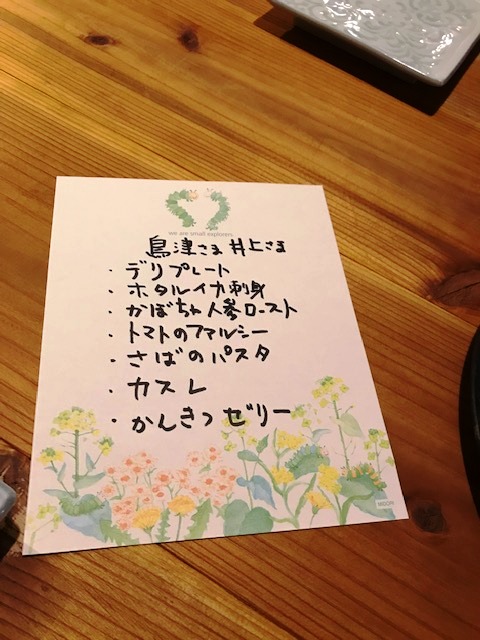 we are small explorers
島津さま 井上さま
・デリプレート
・ホタルイカ刺身
・かぼちゃ人参ロースト
・トマトのファルシー
・さばのパスタ
・カスレ
・かんきつゼリー
MIDORI